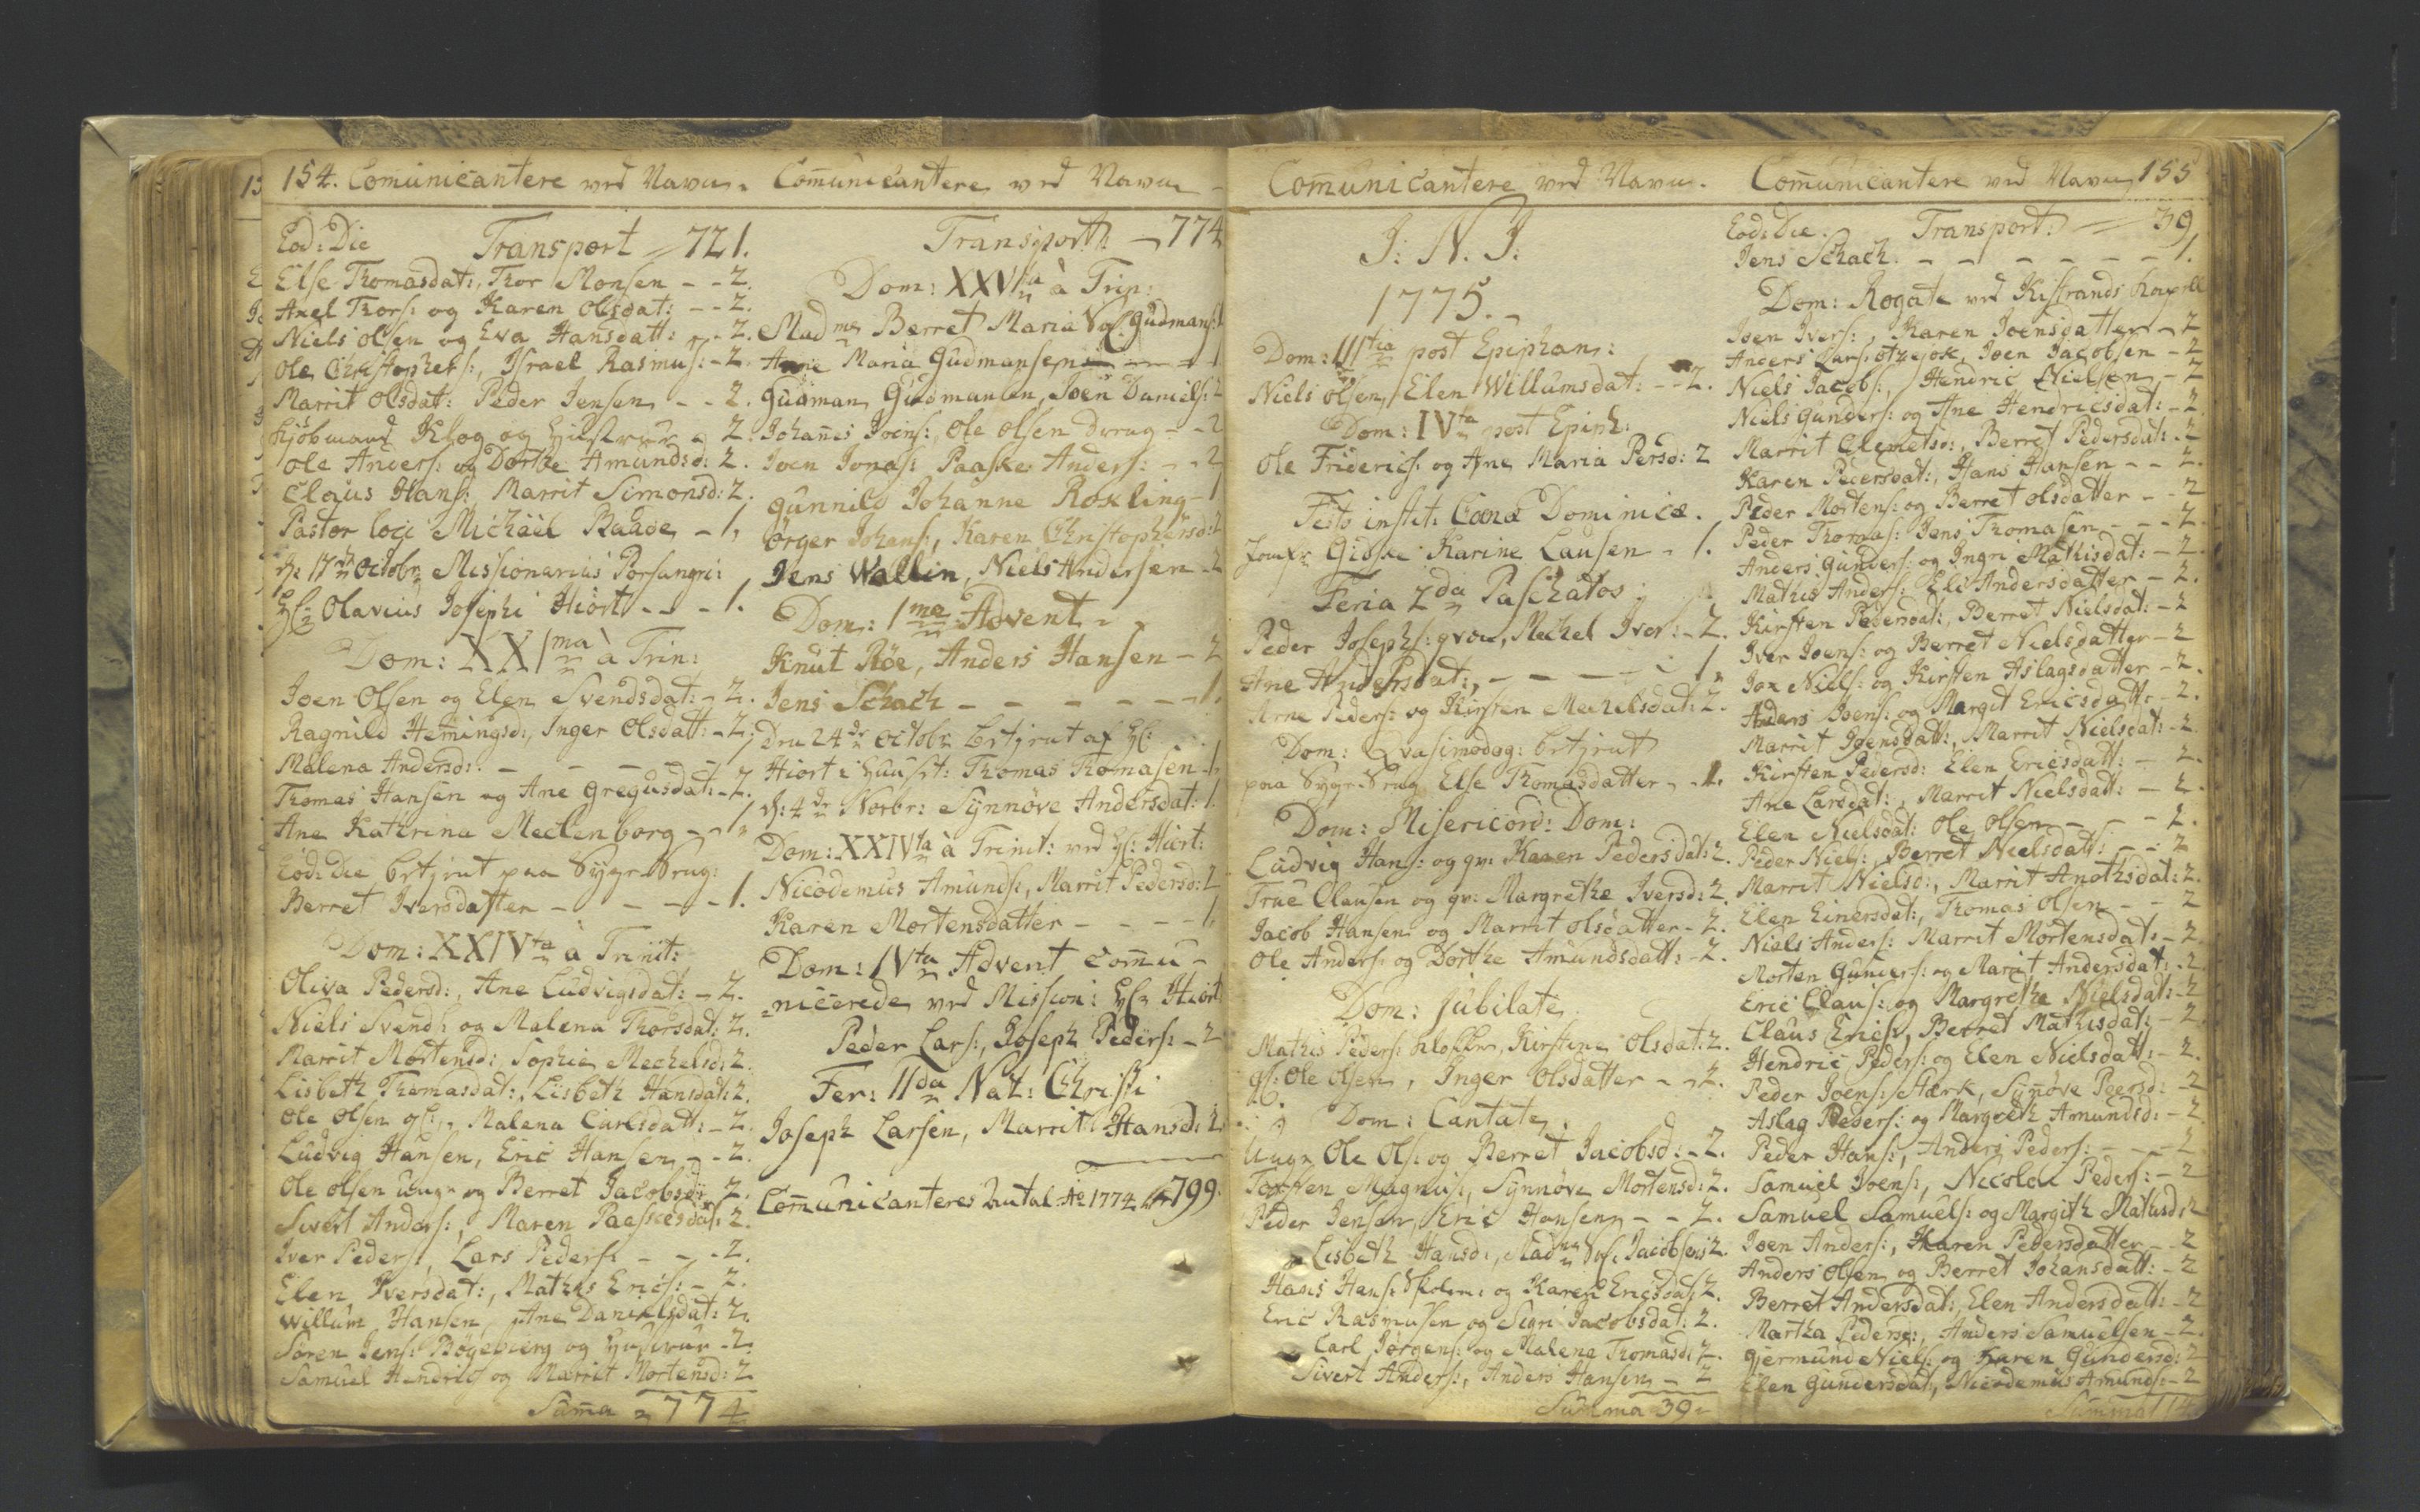 154. Comunicantere ved Navn.
Eod: Die Transport - 721.
Else Thomasdat:, Thor Monsen - - 2.
Axel Thors: og Karen Olsdat: - - 2.
Niels Olsen og Eva Hansdatt: - 2.
Ole Christophers:, Israel Rasmus: - 2.
Marrit Olsdat: Peder Jensen - - 2.
Kjöbmand Klog og Hustrue - 2.
Ole Anders: og Dorthe Amundsd: 2.
Claus Hans:, Marrit Simonsd: 2.
Pastor loci Michäel - 1.
d: 17de Octobr: Missionarius Porsangri:
Hr: Olavius Josephi Hiort - - - 1.
Dom: XXIma à Trin:
Joen Olsen og Elen Svendsdat: - 2.
Ragnild Hemingsd:, Inger Olsdatt: - 2.
Malena Andersd: - - - - - 1.
Thomas Hansen og Ane Gregusdat: - 2.
Ane Kathrina Meclenborg - - 1.
Eod: Die betjent paa Syge-Seng:
Berret Iversdatter - - - - - 1.
Dom: XXIVta à Trinit:
Oliva Pedersd:, Ane Ludvigsdat: - 2.
Niels Svends: og Malena Thorsdat: 2.
Marrit Mortensd: Sophie Mechelsd: 2.
Lisbeth Thomasdat:, Lisbeth Hansdat: 2.
Ole Olsen gl:, Malena Carlsdatt: - 2.
Ludvig Hansen, Eric Hansen - - 2.
Ole Olsen unge og Berret Jacobsd: 2.
Sivert Anders:, Maren Paaskesdat: 2.
Iver Peders:, Lars Peders: - - - 2.
Elen Iversdat:, Mathis Erics: - 2.
Willum Hansen, Ane Danielsdat: 2.
Sören Jens: Bögebierg og Hustrue - 2.
Samuel Hendrics: og Marrit Mortensd: 2
Suma - 774
Comunicantere ved Navn
Transporth - 774
Dom: XXVta à Trin:
Madme Berret Maria Sal: Gudmans: 1
Anne Maria Gudmansen - - 1
Gudman Gudmansen, Joen Daniels: 2
Johanes Joens:, Ole Olsen dreng - - 2
Joen Jonas: Paaske Anders: - - 2
Gunnild Johanne Roxling - 1
Örger Johans:, Karen Christophersd: 2
Jens Wallin, Niels Andersen - 2
Dom: 1ma Advent
Knut Röe, Anders Hansen - 2
Jens Schach - - - - - - 1.
Den 24de Octobr betjent af Hr:
Hiort i Huuset: Thomas Thomasen - 1.
d: 4de Novbr: Synnöve Andersdat: 1.
Dom: XXIVta à Trinit: ved Hr: Hiort:
Nicodemus Amunds:, Marrit Pedersd: 2
Karen Mortensdatter - - - - 1.
Dom: IVta Advent comu-
nicerede ved Mission: Hr Hiort
Peder Lars:, Joseph Peders: - 2
Fer: IIda Nat: Christi
Joseph Larsen, Marrit Hansd: 2
Comunicanteres Antal Ao 1774 er 799.
Comunicantere ved Navn.
J: N. J:
1775.
Dom: IIItia post Epiphan:
Niels Olsen, Elen Willumsdat: - - 2.
Dom: IVta post Epiph:
Ole Friderics: og Ane Maria Persd: 2
Festo instit: Cænæ Dominicæ.
Jomfr Gidske Karine Lausen - 1.
Feria 2da Paschatos:
Peder Josephs: gvæn, Mechel Iver: - 2.
Ane Andersdat:, - - - - - 1.
Arne Peders: og Kirsten Mechelsdat: 2.
Dom: Qvasimodog: betjent
paa Syge-Seng Else Thomasdatter - 1.
Dom: Misericord: Dom:
Ludvig Hans: og qv: Karen Pedersdat: 2.
True Clausen og qv: Margrethe Iversd: 2.
Jacob Hansen og Marrit Olsdatter - 2.
Ole Anders: og Dorthe Amundsdatt: - 2.
Dom: Jubilate
Mathis Peders: klokker, Kirstine Olsdat: 2.
gl: Ole Olsen, Inger Olsdatter - - 2.
Dom: Cantate
Unge Ole Ols: og Berret Jacobsd: - 2.
Torsten Magnus:, Synnöve Mortensd: 2.
Peder Jensen, Eric Hansen - - 2.
Lisbeth Hansd:, Madme Sal: Jacobsens 2.
Hans Hans: Skolem: og Karen Ericsdat: 2.
Eric Rasmusen og Sigri Jacobsdat: 2.
Carl Jörgens: og Malena Thomasd: 2.
Sivert Anders:, Anders Hansen - 2
Summa 39
Comunicantere ved Navn 155
Eod: Die. Transport: - 39
Jens Schach. - - - - - - 1.
Dom: Rogate ved Kistrands Kapell
Joen Ivers:, Karen Joensdatter - 2
Anders Lars: Otzejok, Joen Jacobsen - 2
Niels Jacobs:, Hendric Nielsen - 2
Niels Gunders: og Ane Hendricsdat: - 2.
Marrit Clemetsd:, Berret Pedersdat: - 2
Karen Pedersdat:, Hans Hansen - - 2.
Peder Mortens: og Berret Olsdatter - - 2
Peder Thomas: Jens Thomasen - - - 2.
Anders Gunders: og Ingri Mathisdat: - 2.
Mathis Anders: Eli Andersdatter - 2.
Kirsten Pedersdat:, Berret Nielsdat: - 2
Iver Joens: og Berret Nielsdatter - 2
Jox Niels: og Kirsten Aslagsdatter - 2.
Anders Joens: og Margit Ericsdatt: - 2.
Marrit Joensdatt:, Marrit Nielsdat: - 2.
Kirsten Pedersd: Elen Ericsdatt: - 2.
Ane Larsdat:, Marrit Nielsdatt: - 2.
Elen Nielsdat: Ole Olsen - - - 2.
Peder Niels:, Berret Nielsdatt: - - 2
Marrit Nielsd:, Marrit Anothsdat: 2.
Elen Einersdat:, Thomas Olsen - - 2
Niels Anders: Marrit Mortensdat: - 2.
Morten Gunders: og Marit Andersdat: - 2
Eric Claus: og Margrethe Nielsdat: - 2
Claus Erics:, Berret Mathisdat: - 2.
Hendric Peders: og Elen Nielsdatt: - 2.
Peder Joens: Stærk, Synöve Peersd: - 2
Aslag Peders: og Margreth Amundsd: - 2
Peder Hans:, Anders Peders: - - - 2
Samuel Joens:, Nicolai Peders: - 2
Samuel Samuels: og Margith Mathisd: 2
Joen Anders:, Karen Pedersdatter - - 2
Anders Olsen og Berret Johansdatt: - 2
Berret Andersdat:, Elen Andersdatt: - 2
Martha Pedersd:, Anders Samuelsen - 2.
Gjermund Niels: og Karen Gundersd: 2
Elen Gundersdat:, Nicodemus Amunds: - 2
Summa 114